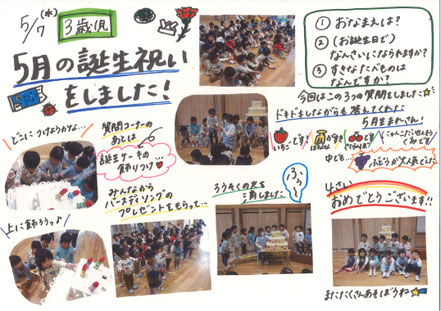 5/7(水)
3歳児
5月の誕生祝い
をしました!
① おなまえは?
② (お誕生日で)
なんさいになられますか?
③ すきなたべものは
なんですか?
今回はこの3つの質問をしました
ドキドキしながらも答えてくれた
5月生まれさん!
いちごです!
どこにつけようかな…
質問コーナーの
あとは
誕生ケーキの
飾りつけ
中でも
ぶどうが大人気でした
みんなから
バースデイソングの
プレゼントをもらって…
ろうそくの火を
消しました
ふぅ
4さい
おめでとうございます!!
上に飾ろうっと
またたくさんあそぼうね